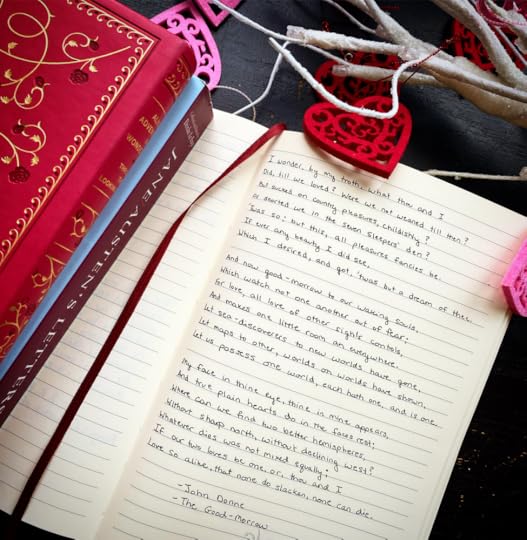 JANE AUSTEN'S LETTERS
I wonder, by my troth, what thou and I
Did, till we loved? Were we not weaned till then?
But sucked on country pleasures, childishly?
Or snorted we in the seven sleepers' den?
'Twas so; but this, all pleasures fancies be.
If ever any beauty I did see,
Which I desired, and got, 'twas but a dream of thee.
And now good-morrow to our waking souls,
Which watch not one another out of fear;
For love, all love of other sights controls,
And makes one little room an everywhere.
Let sea-discoverers to new worlds have gone,
Let maps to other, worlds on worlds have shown,
Let us possess one world, each hath one, and is one.
My face in thine eye, thine in mine appears,
And true plain hearts do in the faces rest;
Where can we find two better hemispheres,
Without sharp north, without declining west?
Whatever dies was not mixed equally;
If our two loves be one, or, thou and I
Love so alike, that none do slacken, none can die.
-John Donne
-The Good-Morrow